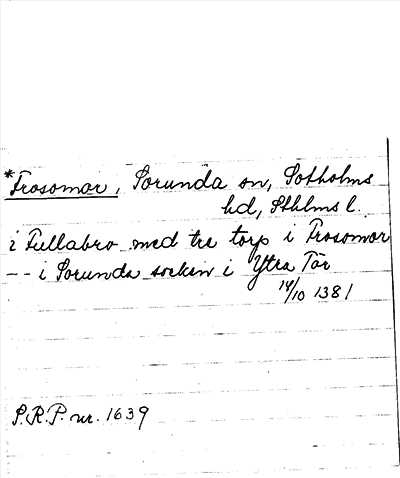 *Frosomor, Sorunda sn, Sotholms
hd, Sthlms l.
i Fullabro med tre torp i Frosomor
-- i Sorunda socken i Ytra Tör
14/10 1381
S.R.P. nr. 1639